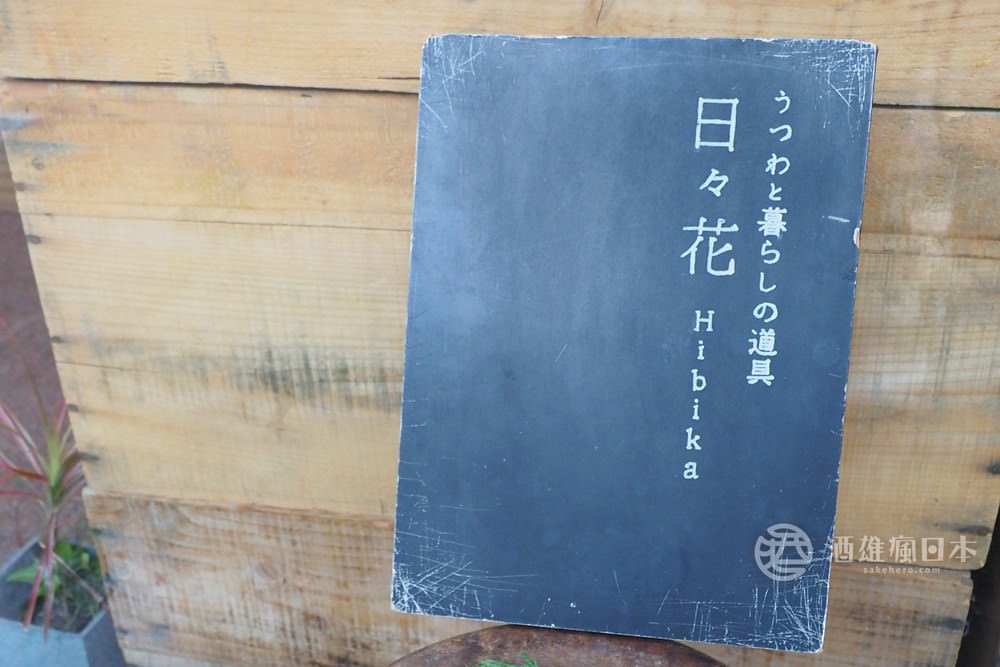 うつわと暮らしの道具
日々花
Hibika
酒雄瘋日本
sakehero.com